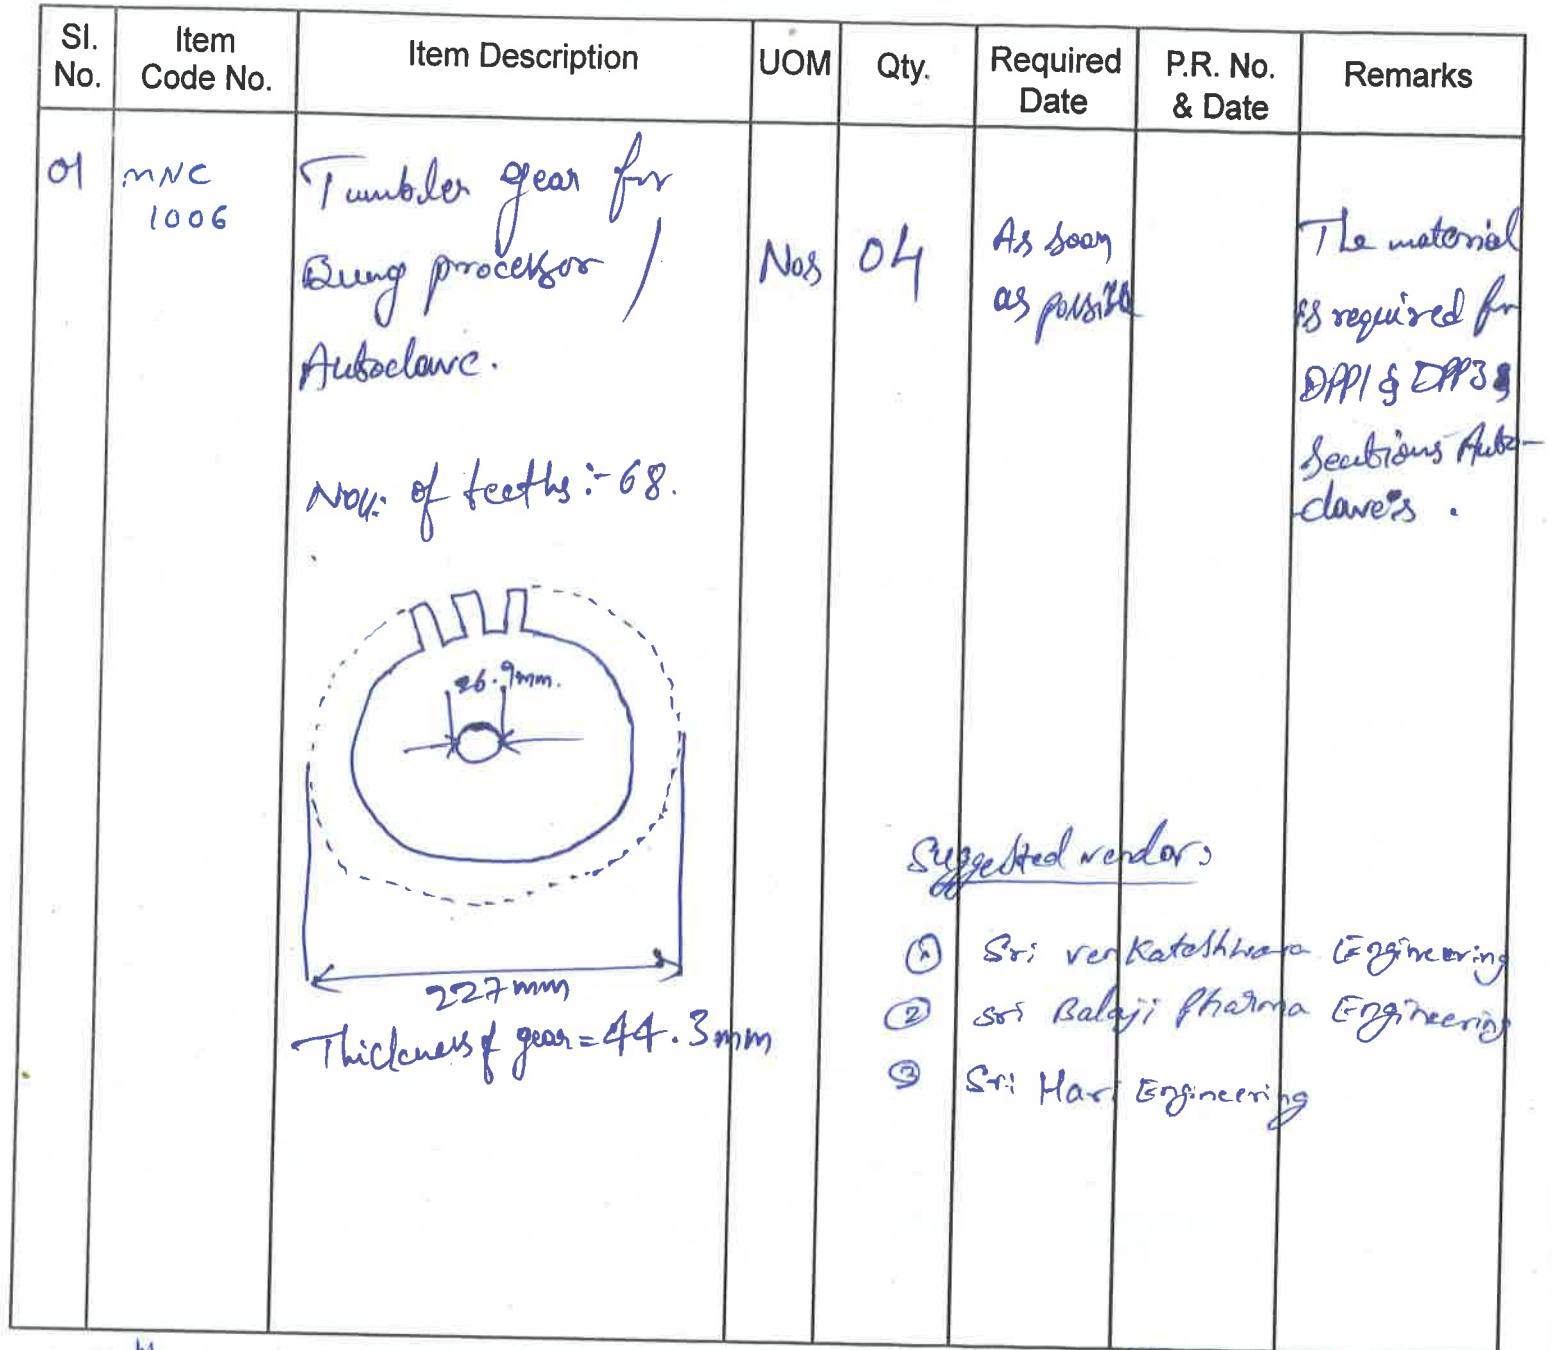 Sl. No.
Item Code No.
Item Description
UOM
Qty.
Required Date
P.R. No. & Date
Remarks
01
MNC
1006
Tumbler gear for
Bung processor /
Autoclave.
Nos: of teeths :- 68.
26.9mm.
227mm
Thickness of gear = 44.3mm
Nos
04
As soon
as possible
The material
is required for
DPP1 & DPP3
Sections Auto-
claves.
Suggested vendor:
1 Sri venkateshwara Engineering
2 sri Balaji Pharma Engineering
3 Sri Hari Engineering